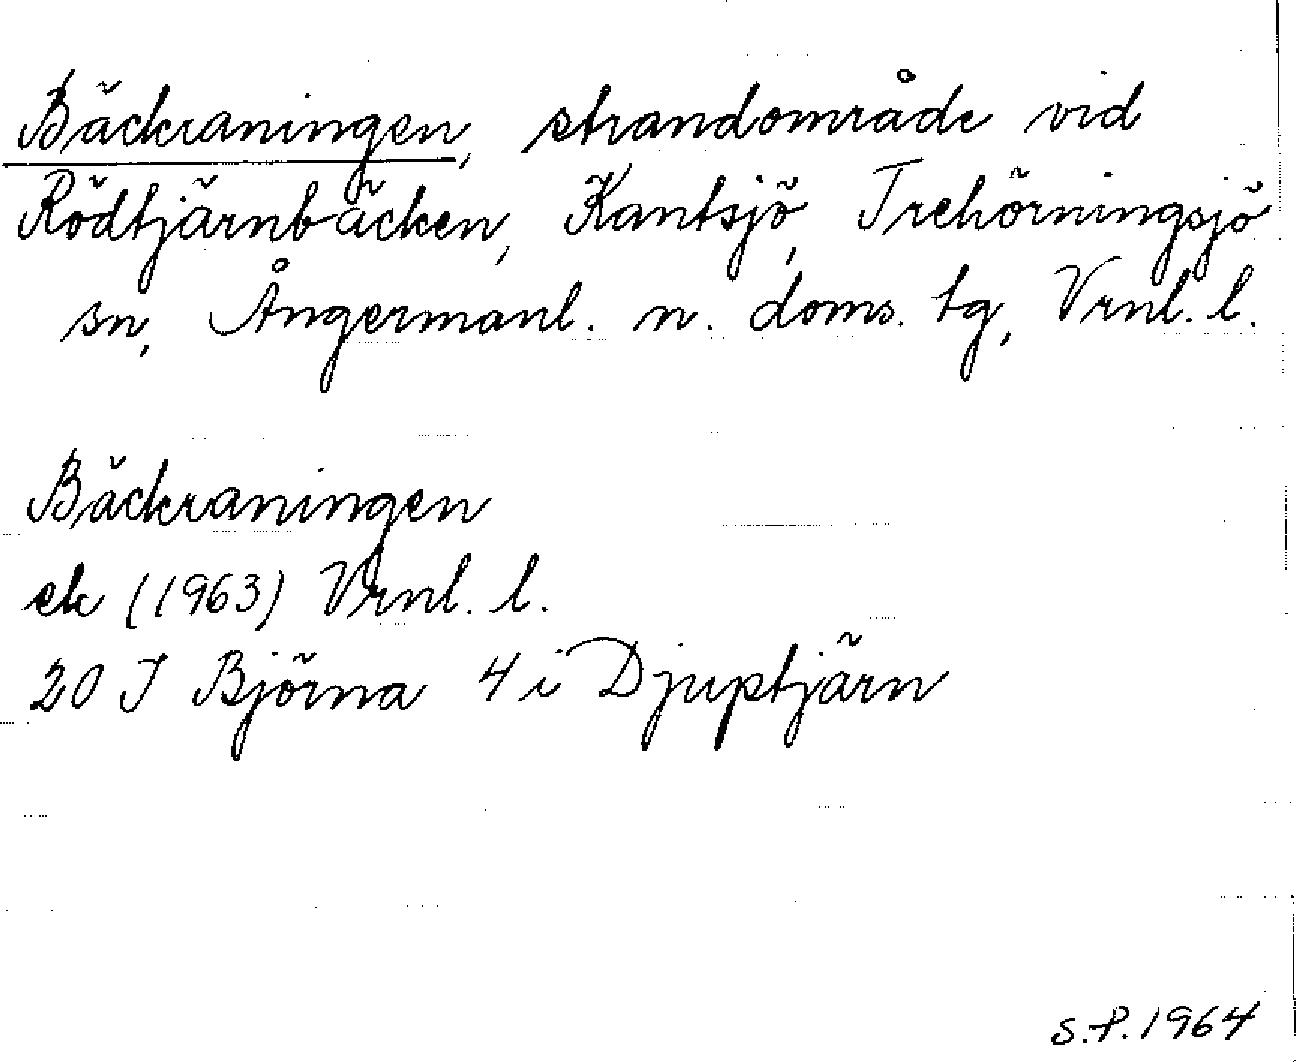 Bäckraningen, strandområde vid
Rödtjärnbäcken, Kantsjö, Trehörningsjö
sn, Ångermanl. n. doms. tg, Vrnl. l.
Bäckraningen
ek (1963) Vrnl. l.
20 J Björna 4 i Djuptjärn
S.P. 1964